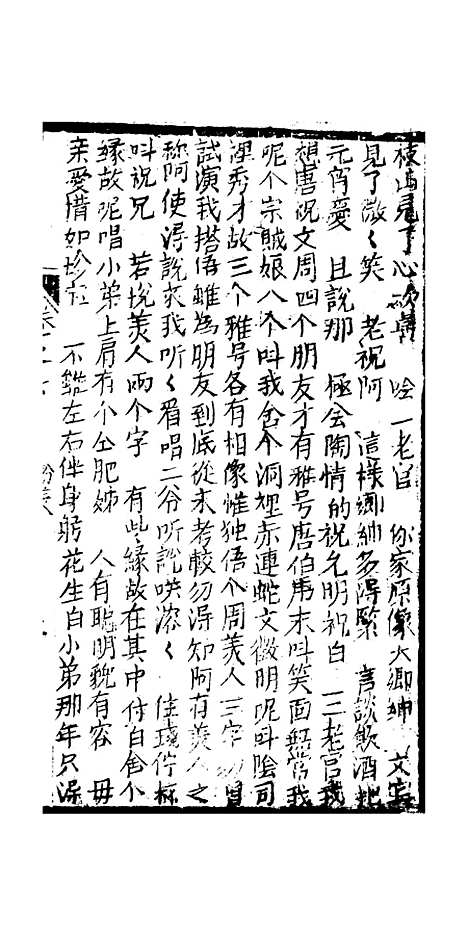 枝山見了心欲  唅一老官 你家原像大鄉紳 文
見了微〻笑 老祝阿 這樣鄉紳多淂緊 言談飲酒
元宵憂 且說那 極会陶情的祝允明祝白 二老官我
想唐祝文周四个朋友才有雅号唐伯虎末呌笑面 我
呢个宗賊娘八个呌我舍个洞裡赤連蛇文徵明呢呌陰司
裡秀才故三个雅号各有相像惟独俉个周美人三字
試演我搭俉雖為朋友到底從未考較勿淂知阿有美人之
称阿使淂說求我听〻眉唱二爷听說哄 〻 佳 停杯
呌祝兄 若說美人兩个字 有些緣故在其中付白舍个
緣故呢唱小弟上肩有个仝胞姊 人有聰明貌有容 毋
亲愛惜如珍 一 左右伴身躬花生白小弟那年只淂